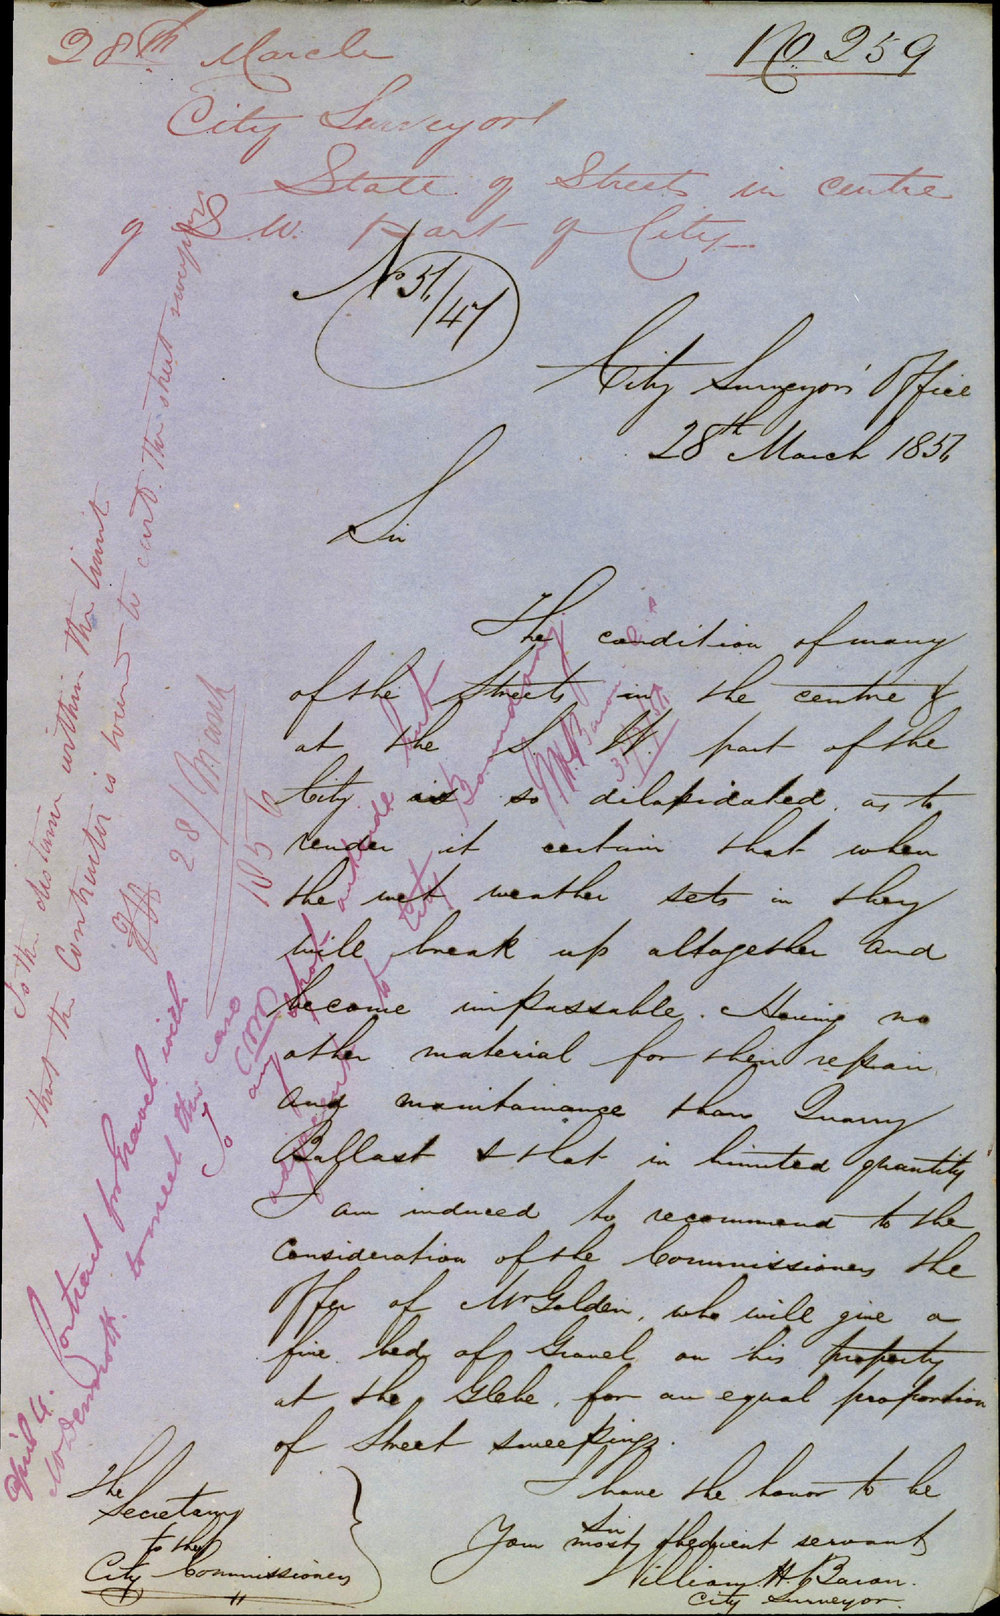 28th March
No. 259
City Surveyor
State of Streets in centre
of S.W. Part of City
No 56/47
City Surveyors' Office
28th March 1856
Sir
The condition of many
of the Streets in the centre &
at the S. W. part of the
City is so dilapidated, as to
render it certain that when
the wet weather sets in they
will break up altogether and
become impassable. Having no
other material for their repair
and maintainance than Quarry
Ballast & that in limited quantity
I am induced to recommend to the
consideration of the Commissioners the
offer of Mr Golden, who will give a
fine bed of Gravel on his property
at the Glebe, for an equal proportion
of Street sweepings.
I have the honor to be
Sir
Your most obedient servant
William H. Baron.
City Surveyor.
The
Secretary
to the
City Commissioners
To the distance within the limit
that the Contractor is bound to cart the street sweepings
28/March
1856
To any spot outside but
adjacent to City Boundary
W. H. Baron
31/3/56
April 4. Contract for Gravel with
McDermott. to meet this case